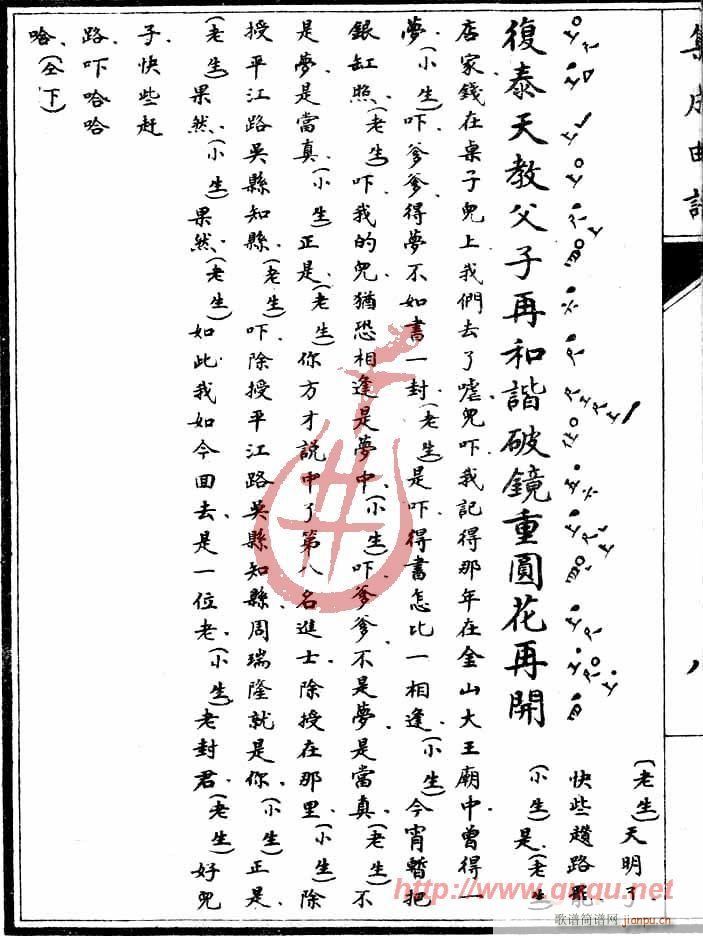 集成曲譜
八
復泰天教父子再和諧破鏡重圓花再開
(老生)天明了
快些趲路罷
(小生)是(老生)
店家錢在桌子兒上我們去了噓兒吓我記得那年在金山大王廟中曾得一
夢(小生)吓爹爹得夢不如書一封(老生)是吓得書怎比一相逢(小生)今宵暫把
銀缸照(老生)吓我的兒猶恐相逢是夢中(小生)吓爹爹不是夢是當真(老生)不
是夢是當真(小生)正是(老生)你方才說中了第八名進士除授在那里(小生)除
授平江路吳縣知縣(老生)吓除授平江路吳縣知縣周瑞隆就是你(小生)正是
(老生)果然(小生)果然(老生)如此我如今回去是一位老(小生)老封君(老生)好兒
子快些赶
路吓哈哈
哈(仝下)
http://www.qupu.net
歌谱简谱网
jianpu.cn